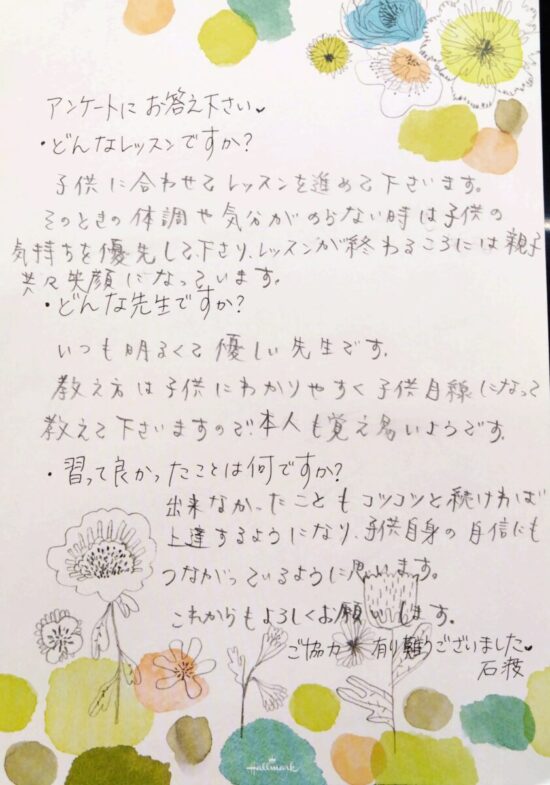 アンケートにお答え下さい♥
・どんなレッスンですか?
子供に合わせてレッスンを進めて下さいます。
そのときの体調や気分がのらない時は子供の
気持ちを優先して下さり、レッスンが終わるころには親子
共々笑顔になっています。
・どんな先生ですか?
いつも明るくて優しい先生です。
教え方は子供にわかりやすく子供目線になって
教えて下さいますので本人も覚え易いようです。
・習って良かったことは何ですか?
出来なかったこともコツコツと続ければ
上達するようになり、子供自身の自信にも
つながっているように思います。
これからもよろしくお願いします。
ご協力 有り難うございました♥
石渡
Hallmark